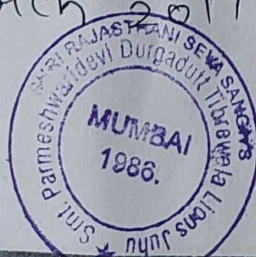 2011
SHRI RAJASTHANI SEVA SANGH'S
Smt. Parmeshwaridevi Durgadutt Tibrewala Lions Juhu
MUMBAI
1986.